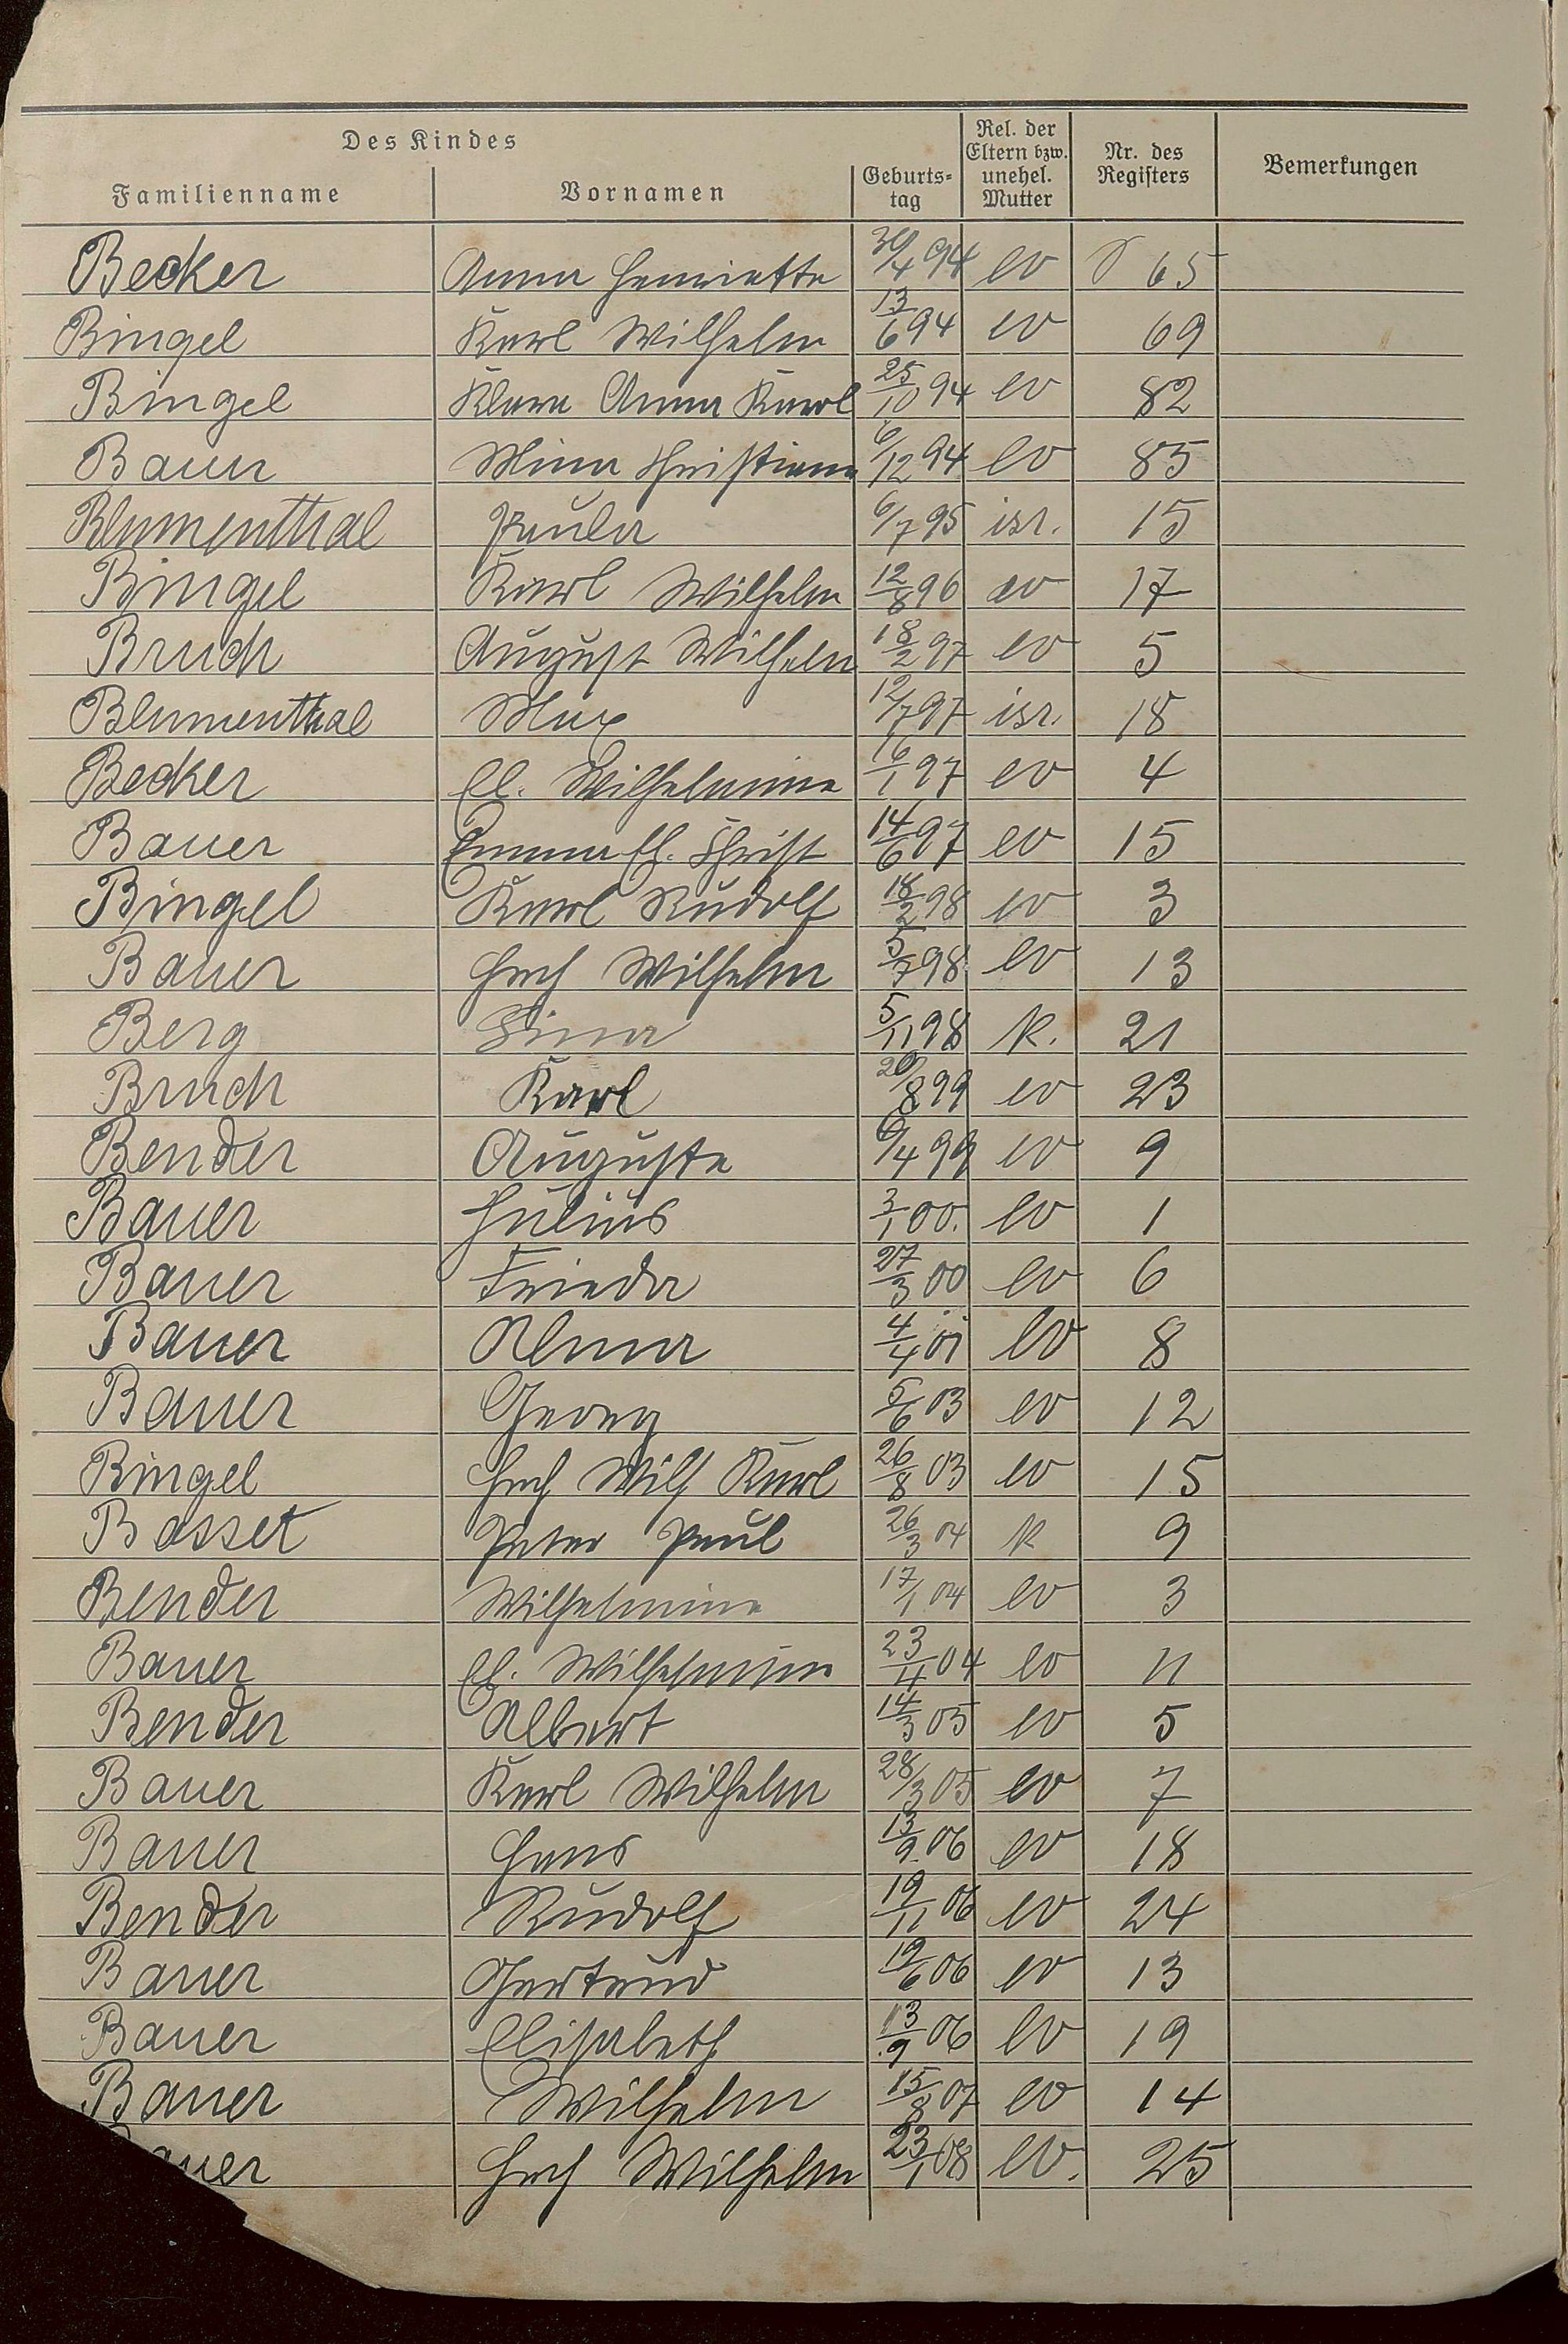 Des Kindes
Familienname Vornamen Geburts-tag Rel. der Eltern bzw. unehel. Mutter Nr. des Registers Bemerkungen
Becker Anna Henriette 30/4 94 ev 65
Bingel Karl Wilhelm 13/6 94 ev 69
Bingel Klara Anna Karol 25/10 94 ev 82
Bauer Mina Christiane 6/12 94 ev 85
Blumenthal Paula 6/7 95 isr. 15
Bingel Karl Wilhelm 12/8 96 ev 17
Bruch August Wilhelm 18/2 97 ev 5
Blumenthal Max 12/7 97 isr. 18
Becker El. Wilhelmine 16/1 97 ev 4
Bauer Emma El. Christ 14/6 97 ev 15
Bingel Karl Rudolf 18/2 98 ev 3
Bauer Hch Wilhelm 5/7 98 ev 13
Berg Lina 5/11 98 k. 21
Bruch Karl 20/8 99 ev 23
Bender Auguste 6/4 99 ev 9
Bauer Julius 3/1 00. ev 1
Bauer Frieda 27/3 00 ev 6
Bauer Alma 4/4 01 ev 8
Bauer Georg 5/6 03 ev 12
Bingel Hch Wilh Karl 26/8 03 ev 15
Basset Peter Paul 26/3 04 k 9
Bender Wilhelmine 17/1 04 ev 3
Bauer El. Wilhelmine 23/4 04 ev 11
Bender Albert 14/3 05 ev 5
Bauer Karl Wilhelm 28/3 05 ev 7
Bauer Hans 13/9 06 ev 18
Bender Rudolf 19/11 06 ev 24
Bauer Gertrud 19/6 06 ev 13
Bauer Elisabeth 13/9 06 ev 19
Bauer Wilhelm 15/8 07 ev 14
auer Hch Wilhelm 23/1 08 ev. 25